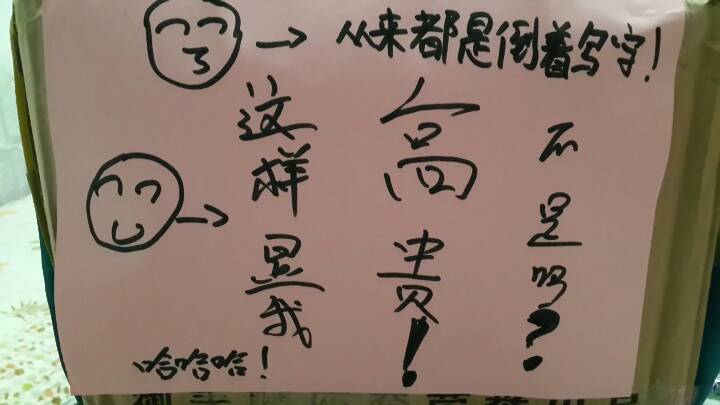 从来都是倒着写字!
这样显我
高贵!
不是吗?
哈哈哈!